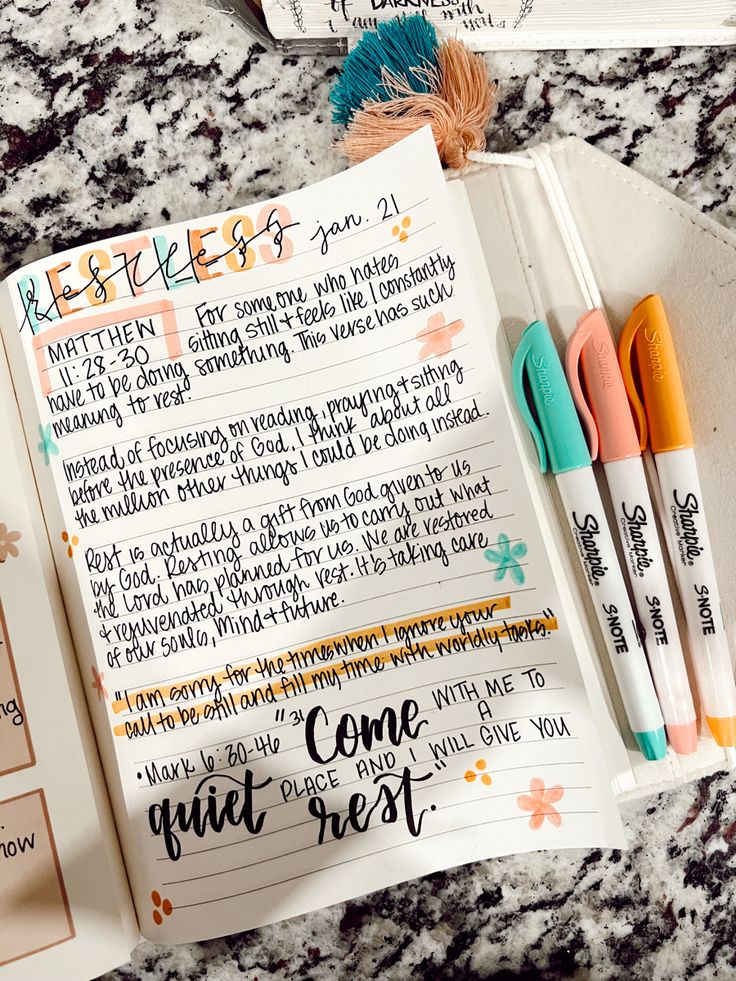 DARKNESS
RESTLESS
restless
jan. 21
MATTHEW
11:28-30
For someone who hates
sitting still + feels like I constantly
have to be doing something. This verse has such
meaning to rest.
Instead of focusing on reading, praying + sitting
before the presence of God, I think about all
the million other things I could be doing instead.
Rest is actually a gift from God given to us
by God. Resting allows us to carry out what
the Lord has planned for us. We are restored
+ rejuvenated through rest. It's taking care
of our souls, mind + future.
"I am sorry for the times when I ignore your
call to be still and fill my time with worldly tasks."
• Mark 6:30-46 "31 Come WITH ME TO
A
quiet PLACE AND I WILL GIVE YOU
rest."
Sharpie
Sharpie
Sharpie
Sharpie S·NOTE
Creative Marker
Sharpie S·NOTE
Creative Marker
Sharpie S·NOTE
ng
how